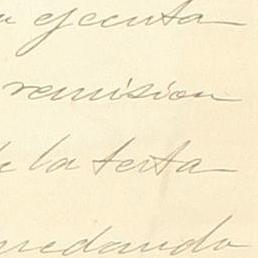 ejecuta
remision
de la testa
quedando